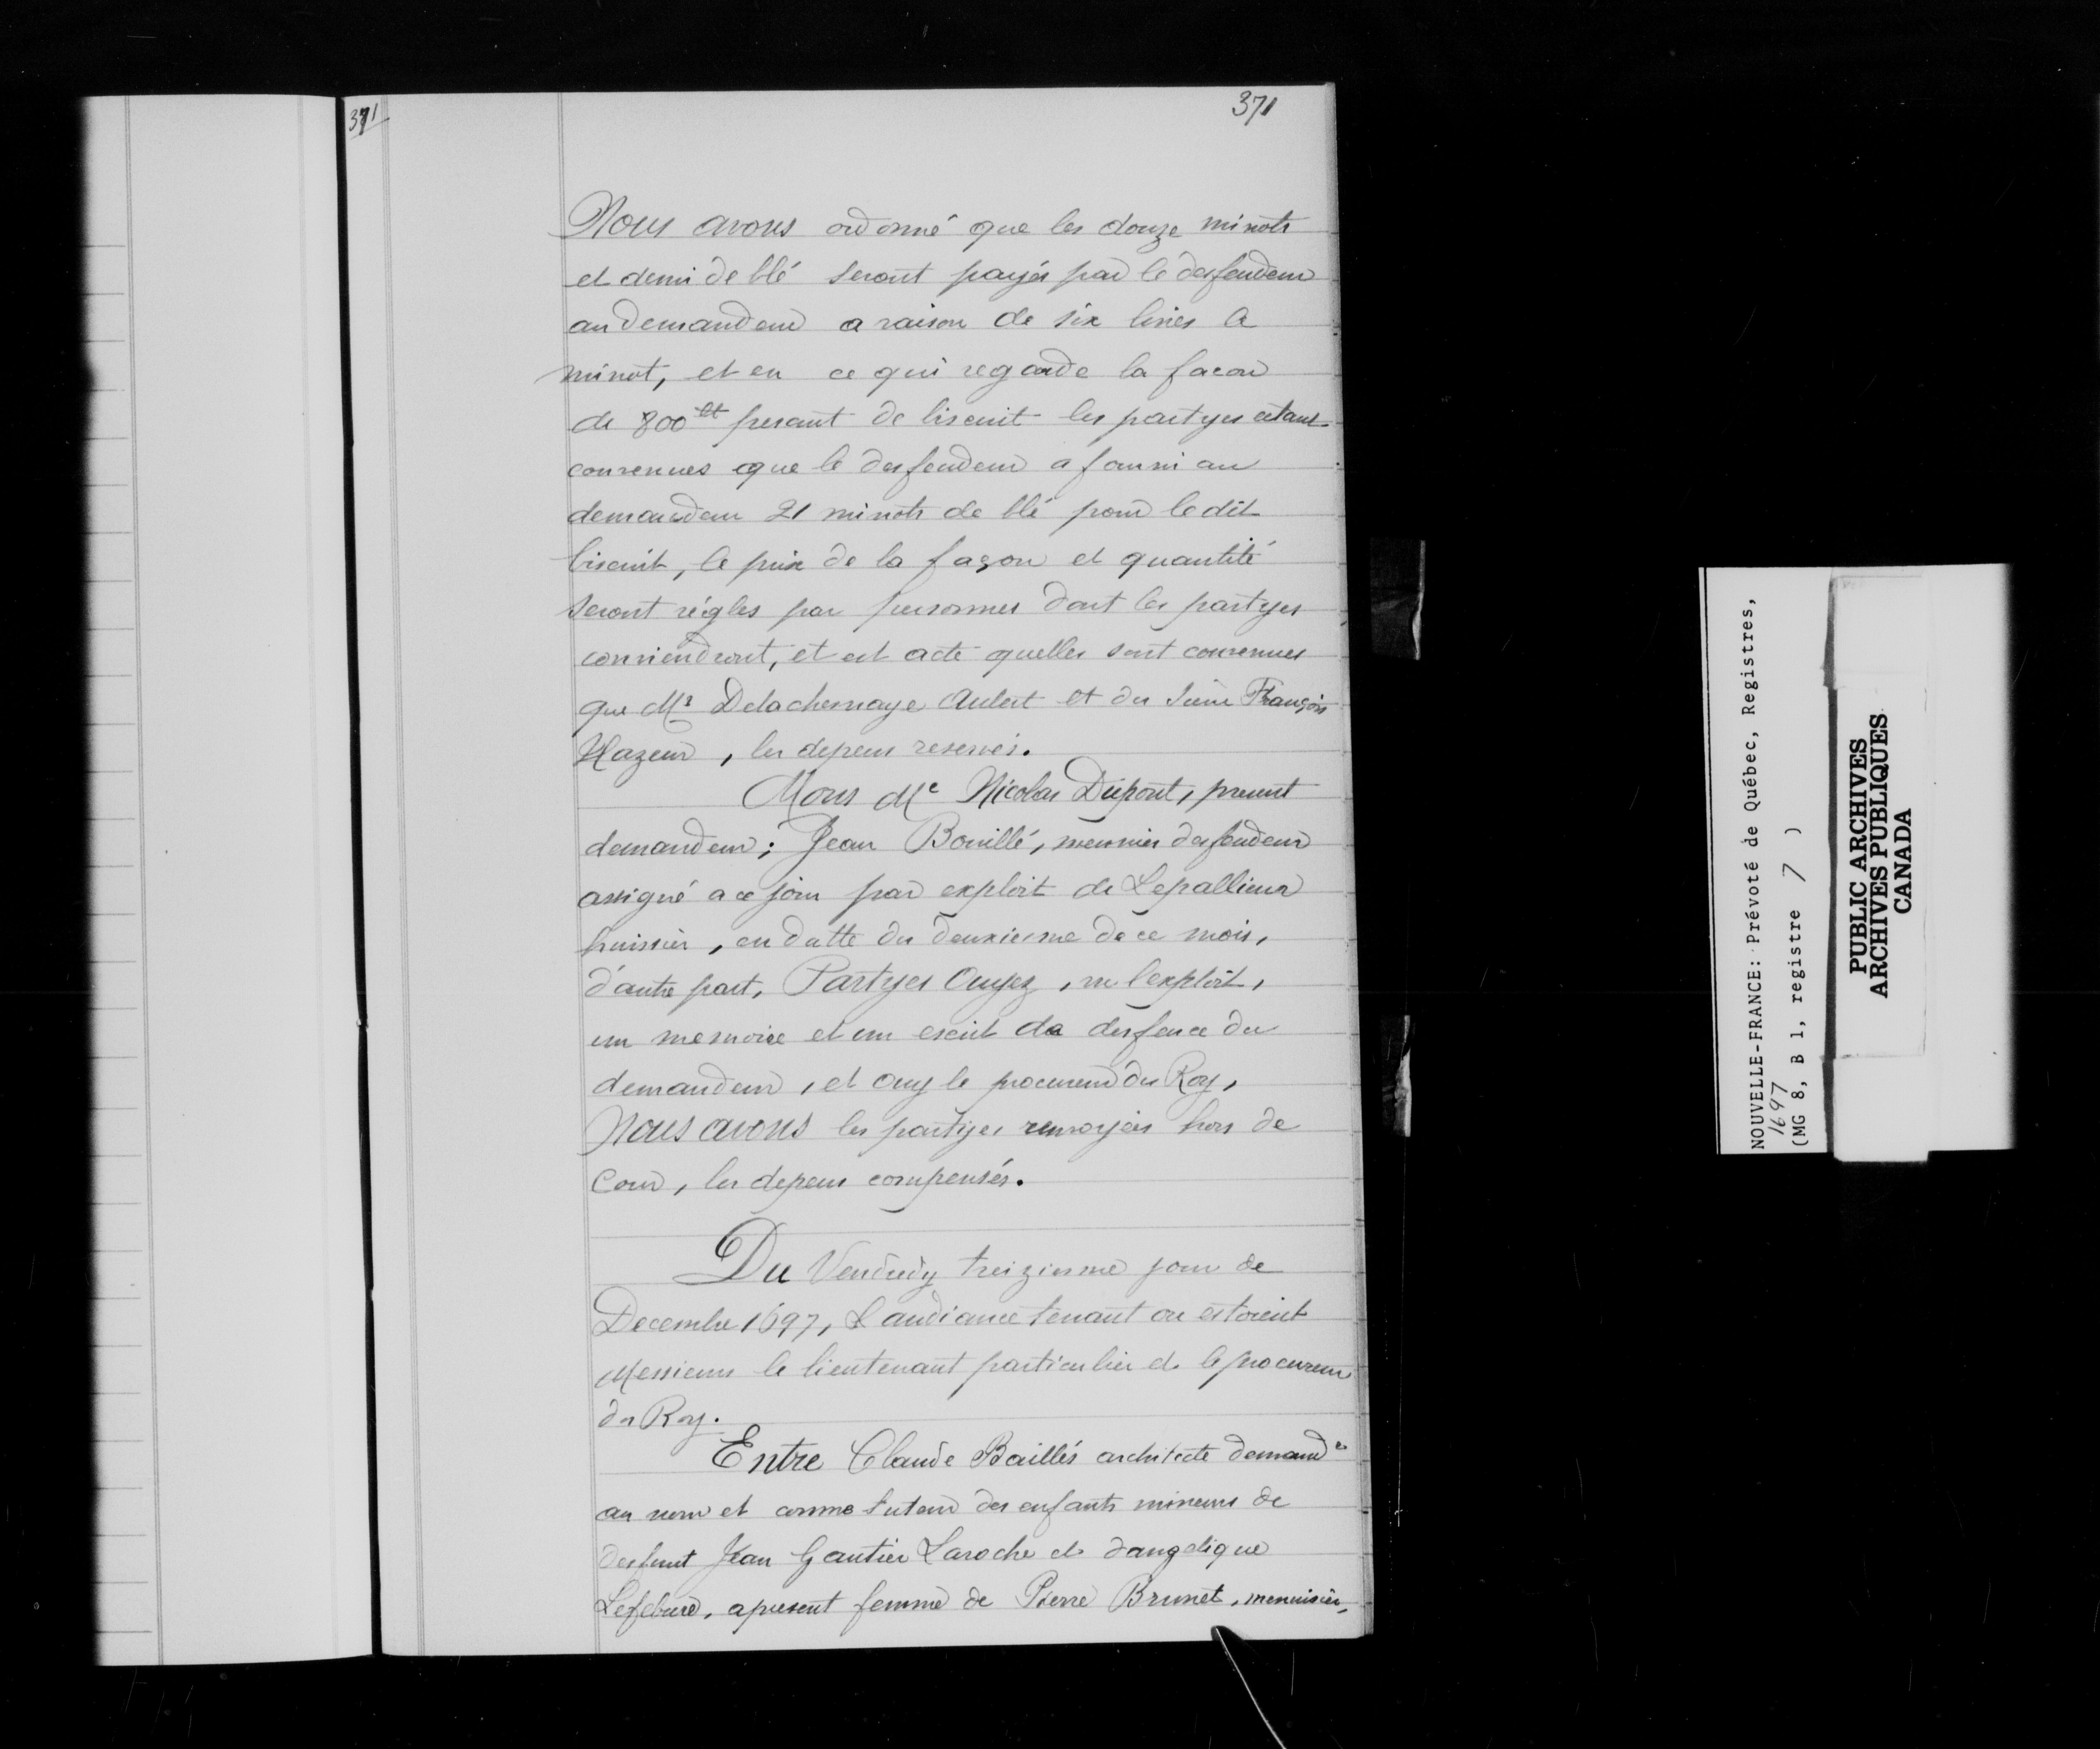 371
371
Nous avons ordonné que les douze minots
et demi de blé seront payés par le desfendeur
au demandeur a raison de six livres le
minot, et en ce qui regarde la facon
de 800lt pesant de biscuit les partyes estant
convenues que le desfendeur a fourni au
demandeur 21 minots de blé pour le dit
biscuit, le prix de la façon et quantité
seront réglés par personnes dont les partyes
conviendront, et est acte quelles sont convenues
que Mr Delachesnaye Aubert et du sieur François
Hazeur, les depens reservés.
Mons Me Nicolas Dupont, present
demandeur; Jean Bouillé, meunier desfendeur
assigné a ce jour par exploit de Lepallieur
huissier, en datte du deuxiesme de ce mois,
d'autre part, Partyes Ouyes, vu l'exploit,
un memoire et un escrit de desfence du
demandeur, et ouy le procureur du Roy,
Nous avons les partyes renvoyées hors de
Cour, les depens compensés.
Du Vendredy treiziesme jour de
Decembre 1697, L'audiance tenant ou estoient
Messieurs le lieutenant particulier et le procureur
du Roy.
Entre Claude Baillés architecte demandr
au nom et comme tuteur des enfants mineurs de
desfunt Jean Gautier Laroche et d'angelique
Lefebure, apresent femme de Pierre Brunet, menuisier,
NOUVELLE-FRANCE: Prévoté de Québec, Registres,
1697
(MG 8, B 1, registre 7 )
PUBLIC ARCHIVES
ARCHIVES PUBLIQUES
CANADA